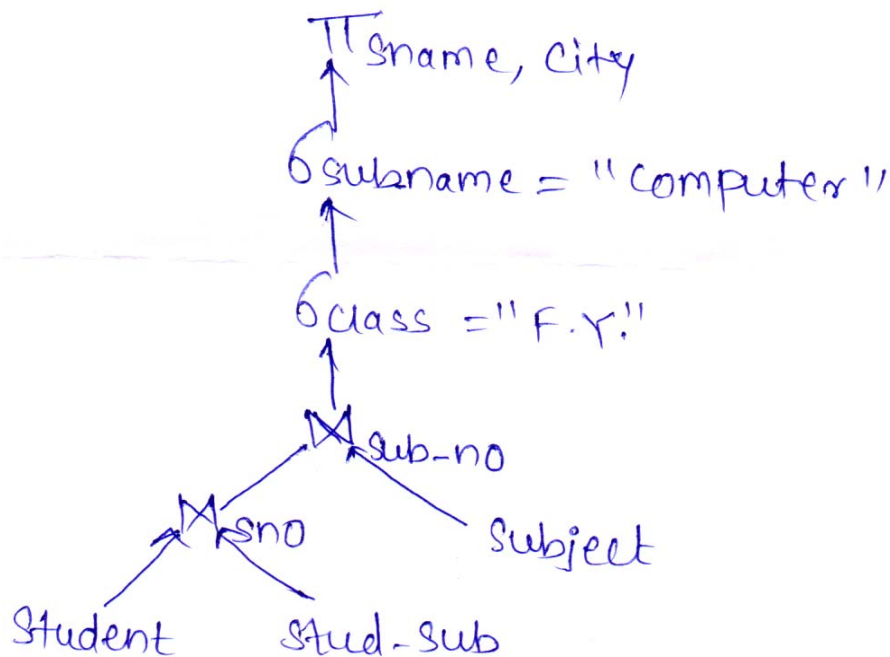 π sname, city
σ subname = "computer"
σ class = "F.Y."
⋈ sub-no
⋈ sno
Subject
Student stud-sub